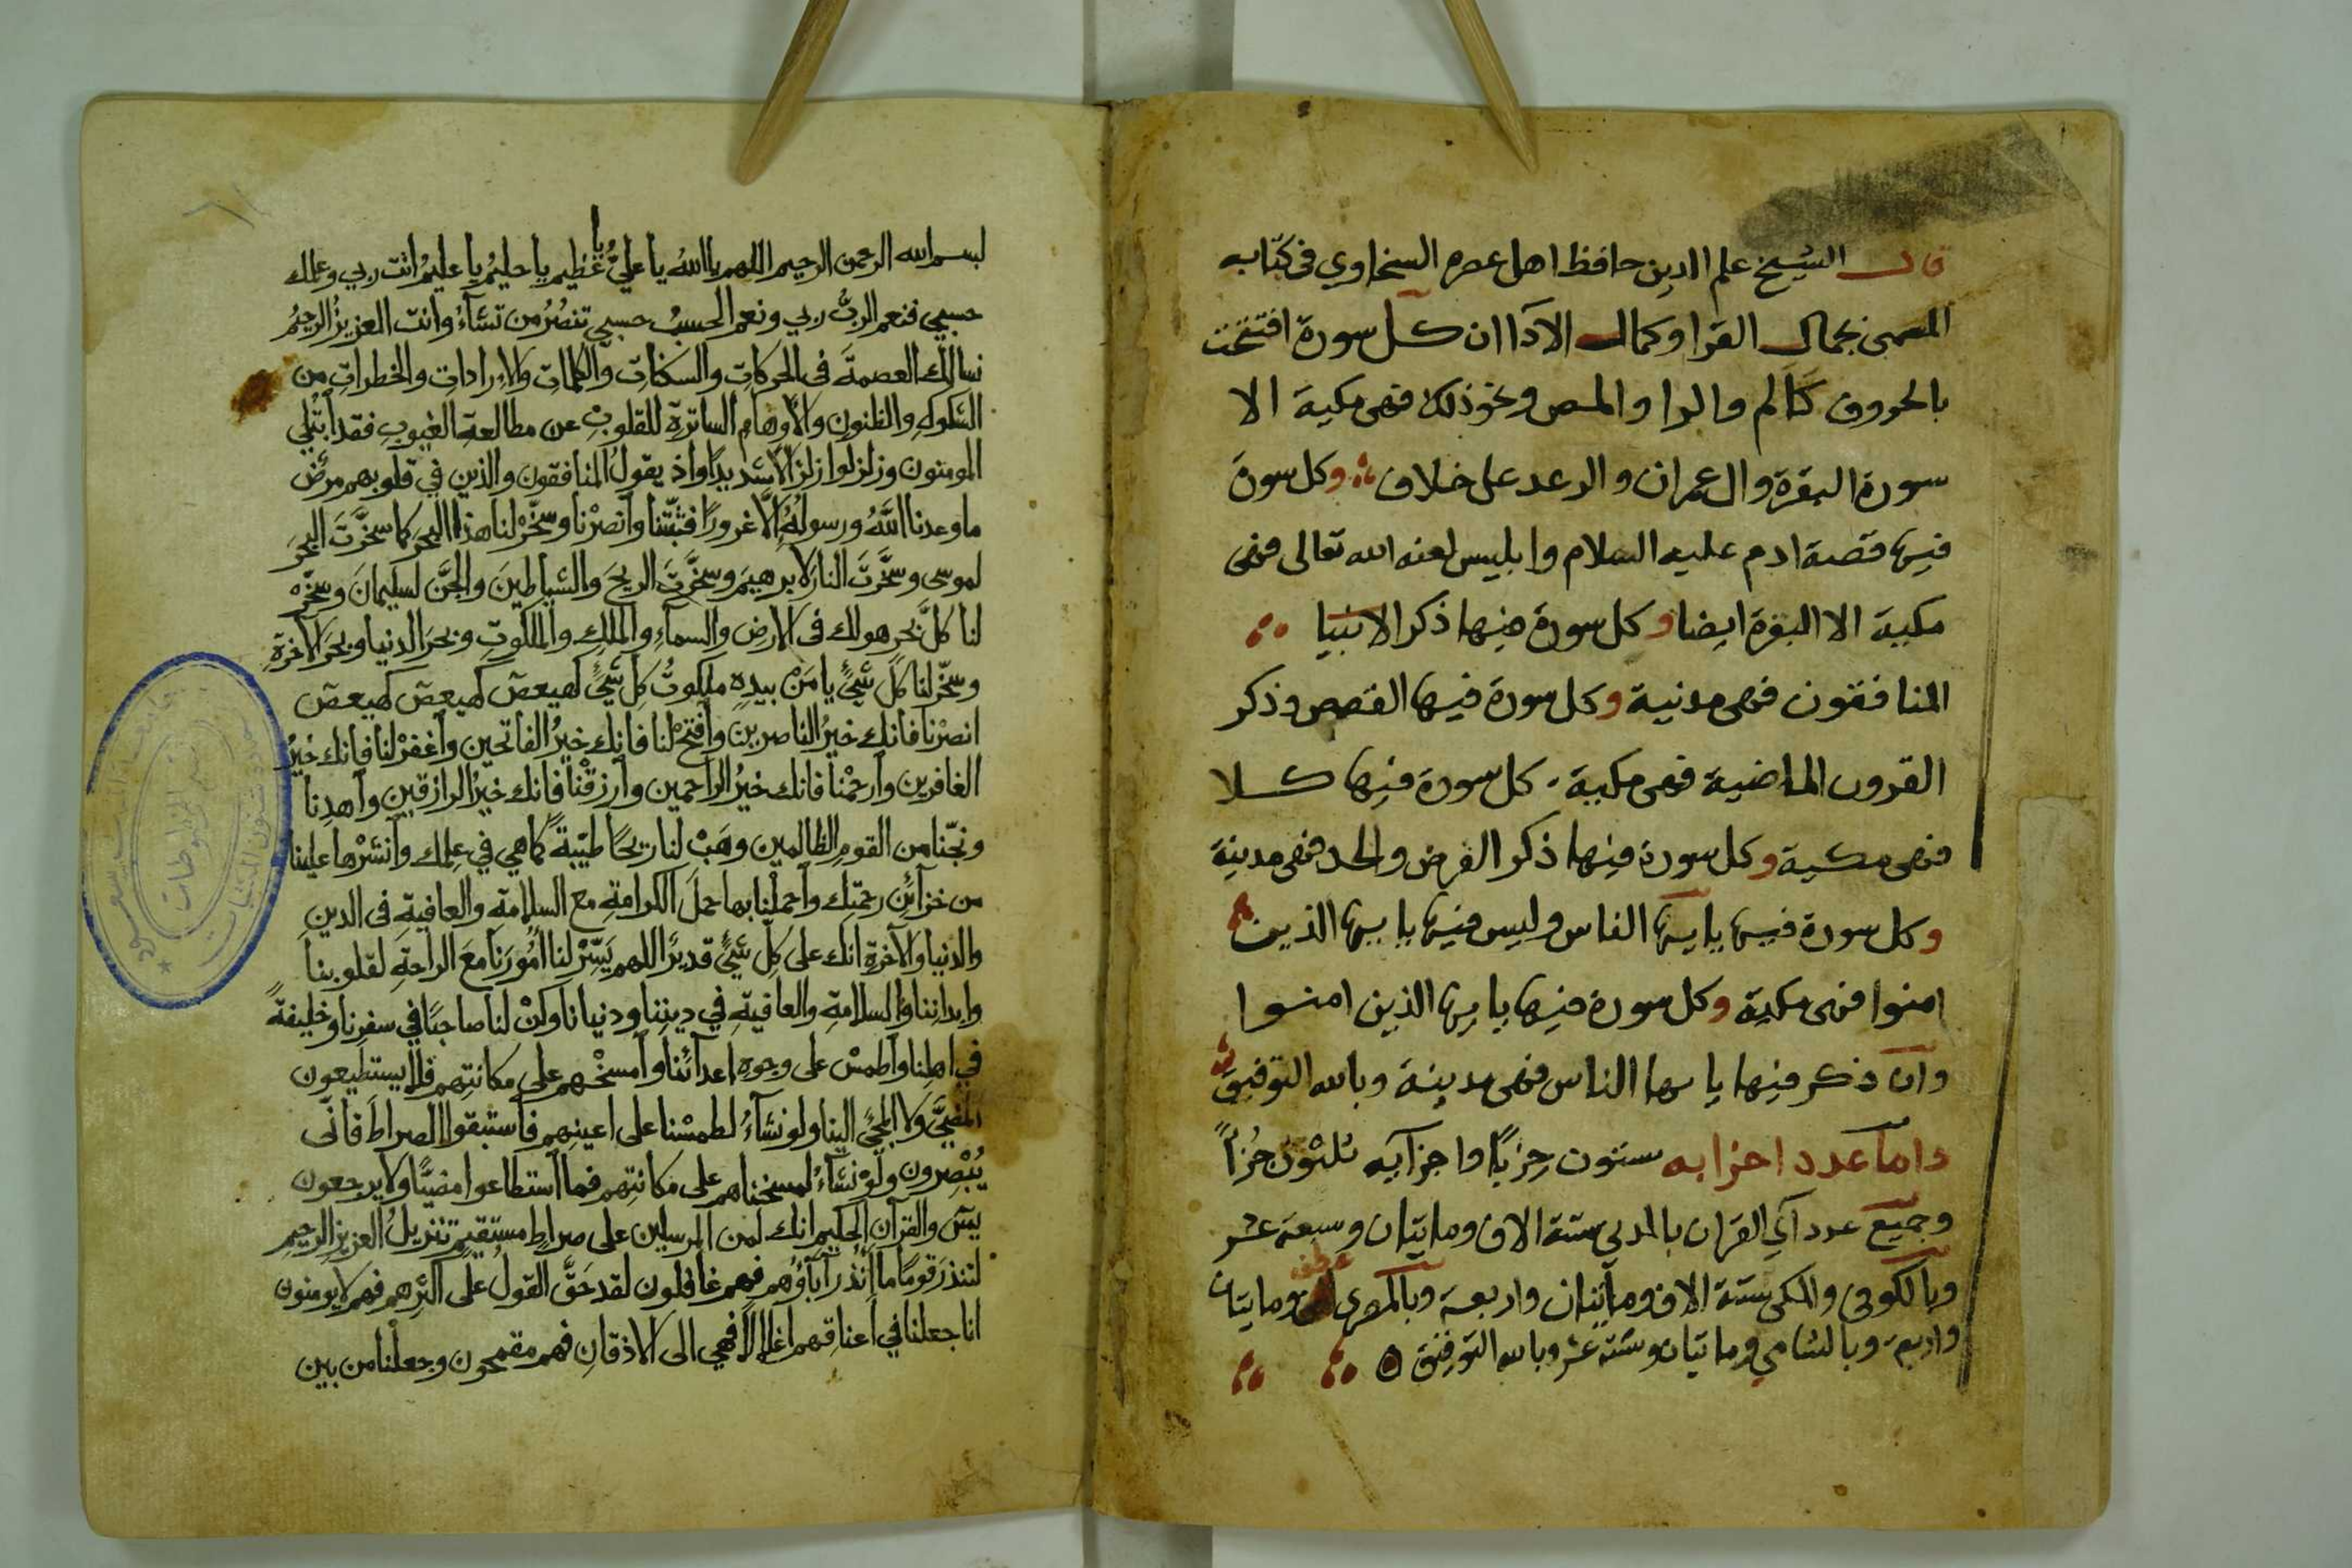 قال الشيخ علم الدين حافظ اهل عصره السخاوي في كتابه
المسمى بجمال القرا وكمال الآدا ان كل سورة افتتحت
بالحروف كالم والرا والمص ونحو ذلك فهى مكية الا
سورة البقرة وال عمران والرعد على خلاف وكل سورة
فيها قصة ادم عليه السلام وابليس لعنه الله تعالى فهى
مكية الا البقرة ايضا وكل سورة فيها ذكر الانبيا
المنافقون فهى مدنية وكل سورة فيها القصص وذكر
القرون الماضية فهى مكية كل سورة فيها كلا
فهى مكية وكل سورة فيها ذكر الفرض والحد فهى مدينة
وكل سورة فيها يا ايها الناس وليس فيها يا ايها الذين
امنوا فهى مكية وكل سورة فيها يا ايها الذين امنوا
وان ذكر فيها يا ايها الناس فهى مدينة وبالله التوفيق
واما عدد احزابه ستون حِزبًا واجزآيه ثلثون جُزأً
وجميع عدد آي القرآن بالمدني ستة الاف ومايتان وسبعة عشر
وبالكوفى والمكى ستة الاف ومآيتان واربعة وبالمصرى ومايتان
واربع وبالشامي ومايتان وستة عشر وبالله التوفيق
بسم الله الرحمن الرحيم اللهم يا اللهُ يا عليُّ يا عظيم يا حليمُ يا عليمُ انت ربي وعلمك
حسبي فنعم الربُّ ربي ونعم الحسبُ حسبي تنصُرُ من تشآءُ وانت العزيزُ الرحيمُ
نسالك العصمةَ في الحركاتِ والسكناتِ والكلماتِ والاراداتِ والخطراتِ من
الشكوكِ والظنونِ والاوهامِ الساترةِ للقلوبِ عن مطالعةِ الغيوبِ فقد ابتُلي
المومنون وزلزلوا زلزالًا شديدًا واذ يقولُ المنافقون والذين في قلوبهم مرضٌ
ما وعدنا اللهُ ورسولهُ الّا غرورًا فثبّتنا وانصرْنا وسخّرْ لنا هذا البحرَ كما سخَّرتَ البحرَ
لموسى وسخَّرتَ النارَ لابرهيمَ وسخَّرتَ الريحَ والشياطينَ والجنَّ لسليمانَ وسخّرْ
لنا كلَّ بحرٍ هو لك فى الارضِ والسمآءِ والملكِ والملكوتِ وبحرَ الدنيا وبحرَ الآخرةِ
وسخّرْ لنا كلَّ شيءٍ يا مَنْ بيدهِ ملكوتُ كلِ شيءٍ كهيعص كهيعص كهيعص
انصرْنا فانك خيرُ الناصرين وافتحْ لنا فانك خيرُ الفاتحين واغفرْ لنا فانك خيرُ
الغافرين وارحمْنا فانك خيرُ الراحمين وارزقْنا فانك خيرُ الرازقين واهدِنا
ونجّنا من القومِ الظالمين وهَبْ لنا ريحًا طيّبةً كما هي في علمك وانشرْها علينا
من خزآئنِ رحمتك واحملْنا بها حملَ الكرامةِ مع السلامةِ والعافيةِ فى الدينِ
والدنيا والآخرةِ انك على كلِ شيءٍ قديرٌ اللهم يَسِّرْ لنا اُمُورَنا معَ الراحةِ لقلوبنا
وابداننا والسلامةِ والعافيةِ في ديننا ودنيانا وكنْ لنا صاحبًا في سفرنا وخليفةً
في اهلنا واطمسْ على وجوهِ اعدآئنا وامسخْهم على مكانتِهم فلا يستطيعون
المضيَّ ولا المجيَ الينا ولو نشآءُ لطمسْنا على اعينِهم فاستبقوا الصراطَ فانَّى
يُبْصِرون ولوْ نشآءُ لمسخناهم على مكانتِهم فما استطاعوا مضيًّا ولا يرجعون
يس والقرآنِ الحكيم انك لمن المرسلين على صراطٍ مستقيمٍ تنزيلُ العزيزِ الرحيمِ
لتنذرَ قومًا ما اُنذر آباؤهم فهم غافلون لقد حَقَّ القولُ على اكثرِهم فهم لا يومنون
انا جعلنا في اعناقهم اغلالًا فهي الى الاذقانِ فهم مقمحون وجعلْنا من بين